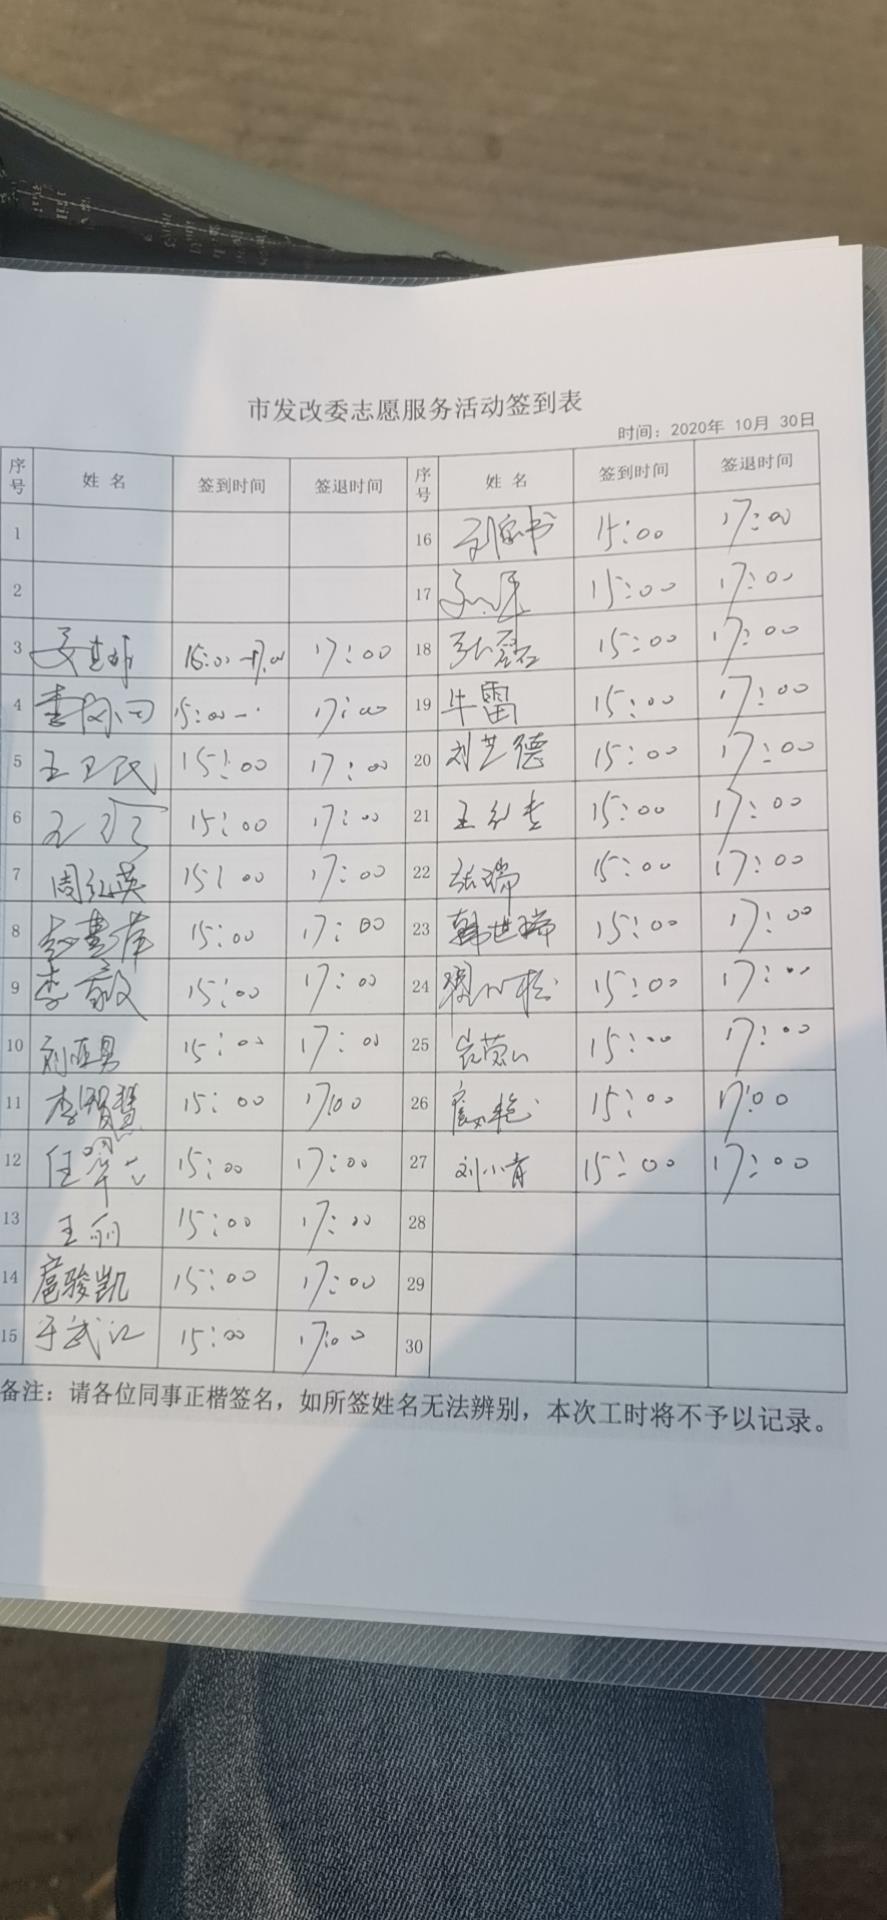 市发改委志愿服务活动签到表
时间：2020年 10月 30日
序号 姓 名 签到时间 签退时间 序号 姓 名 签到时间 签退时间
1 16 15:00 17:00
2 17 15:00 17:00
3 15:00-17:00 17:00 18 张磊 15:00 17:00
4 15:00-. 17:00 19 牛雷 15:00 17:00
5 王卫民 15:00 17:00 20 刘艺德 15:00 17:00
6 15:00 17:00 21 15:00 17:00
7 周红英 15:00 17:00 22 张瑞 15:00 17:00
8 15:00 17:00 23 韩世瑞 15:00 17:00
9 李敏 15:00 17:00 24 15:00 17:00
10 刘亚男 15:00 17:00 25 15:00 17:00
11 李智慧 15:00 17:00 26 15:00 17:00
12 15:00 17:00 27 刘小青 15:00 17:00
13 王丽 15:00 17:00 28
14 扈骏凯 15:00 17:00 29
15 于武江 15:00 17:00 30
备注：请各位同事正楷签名，如所签姓名无法辨别，本次工时将不予以记录。